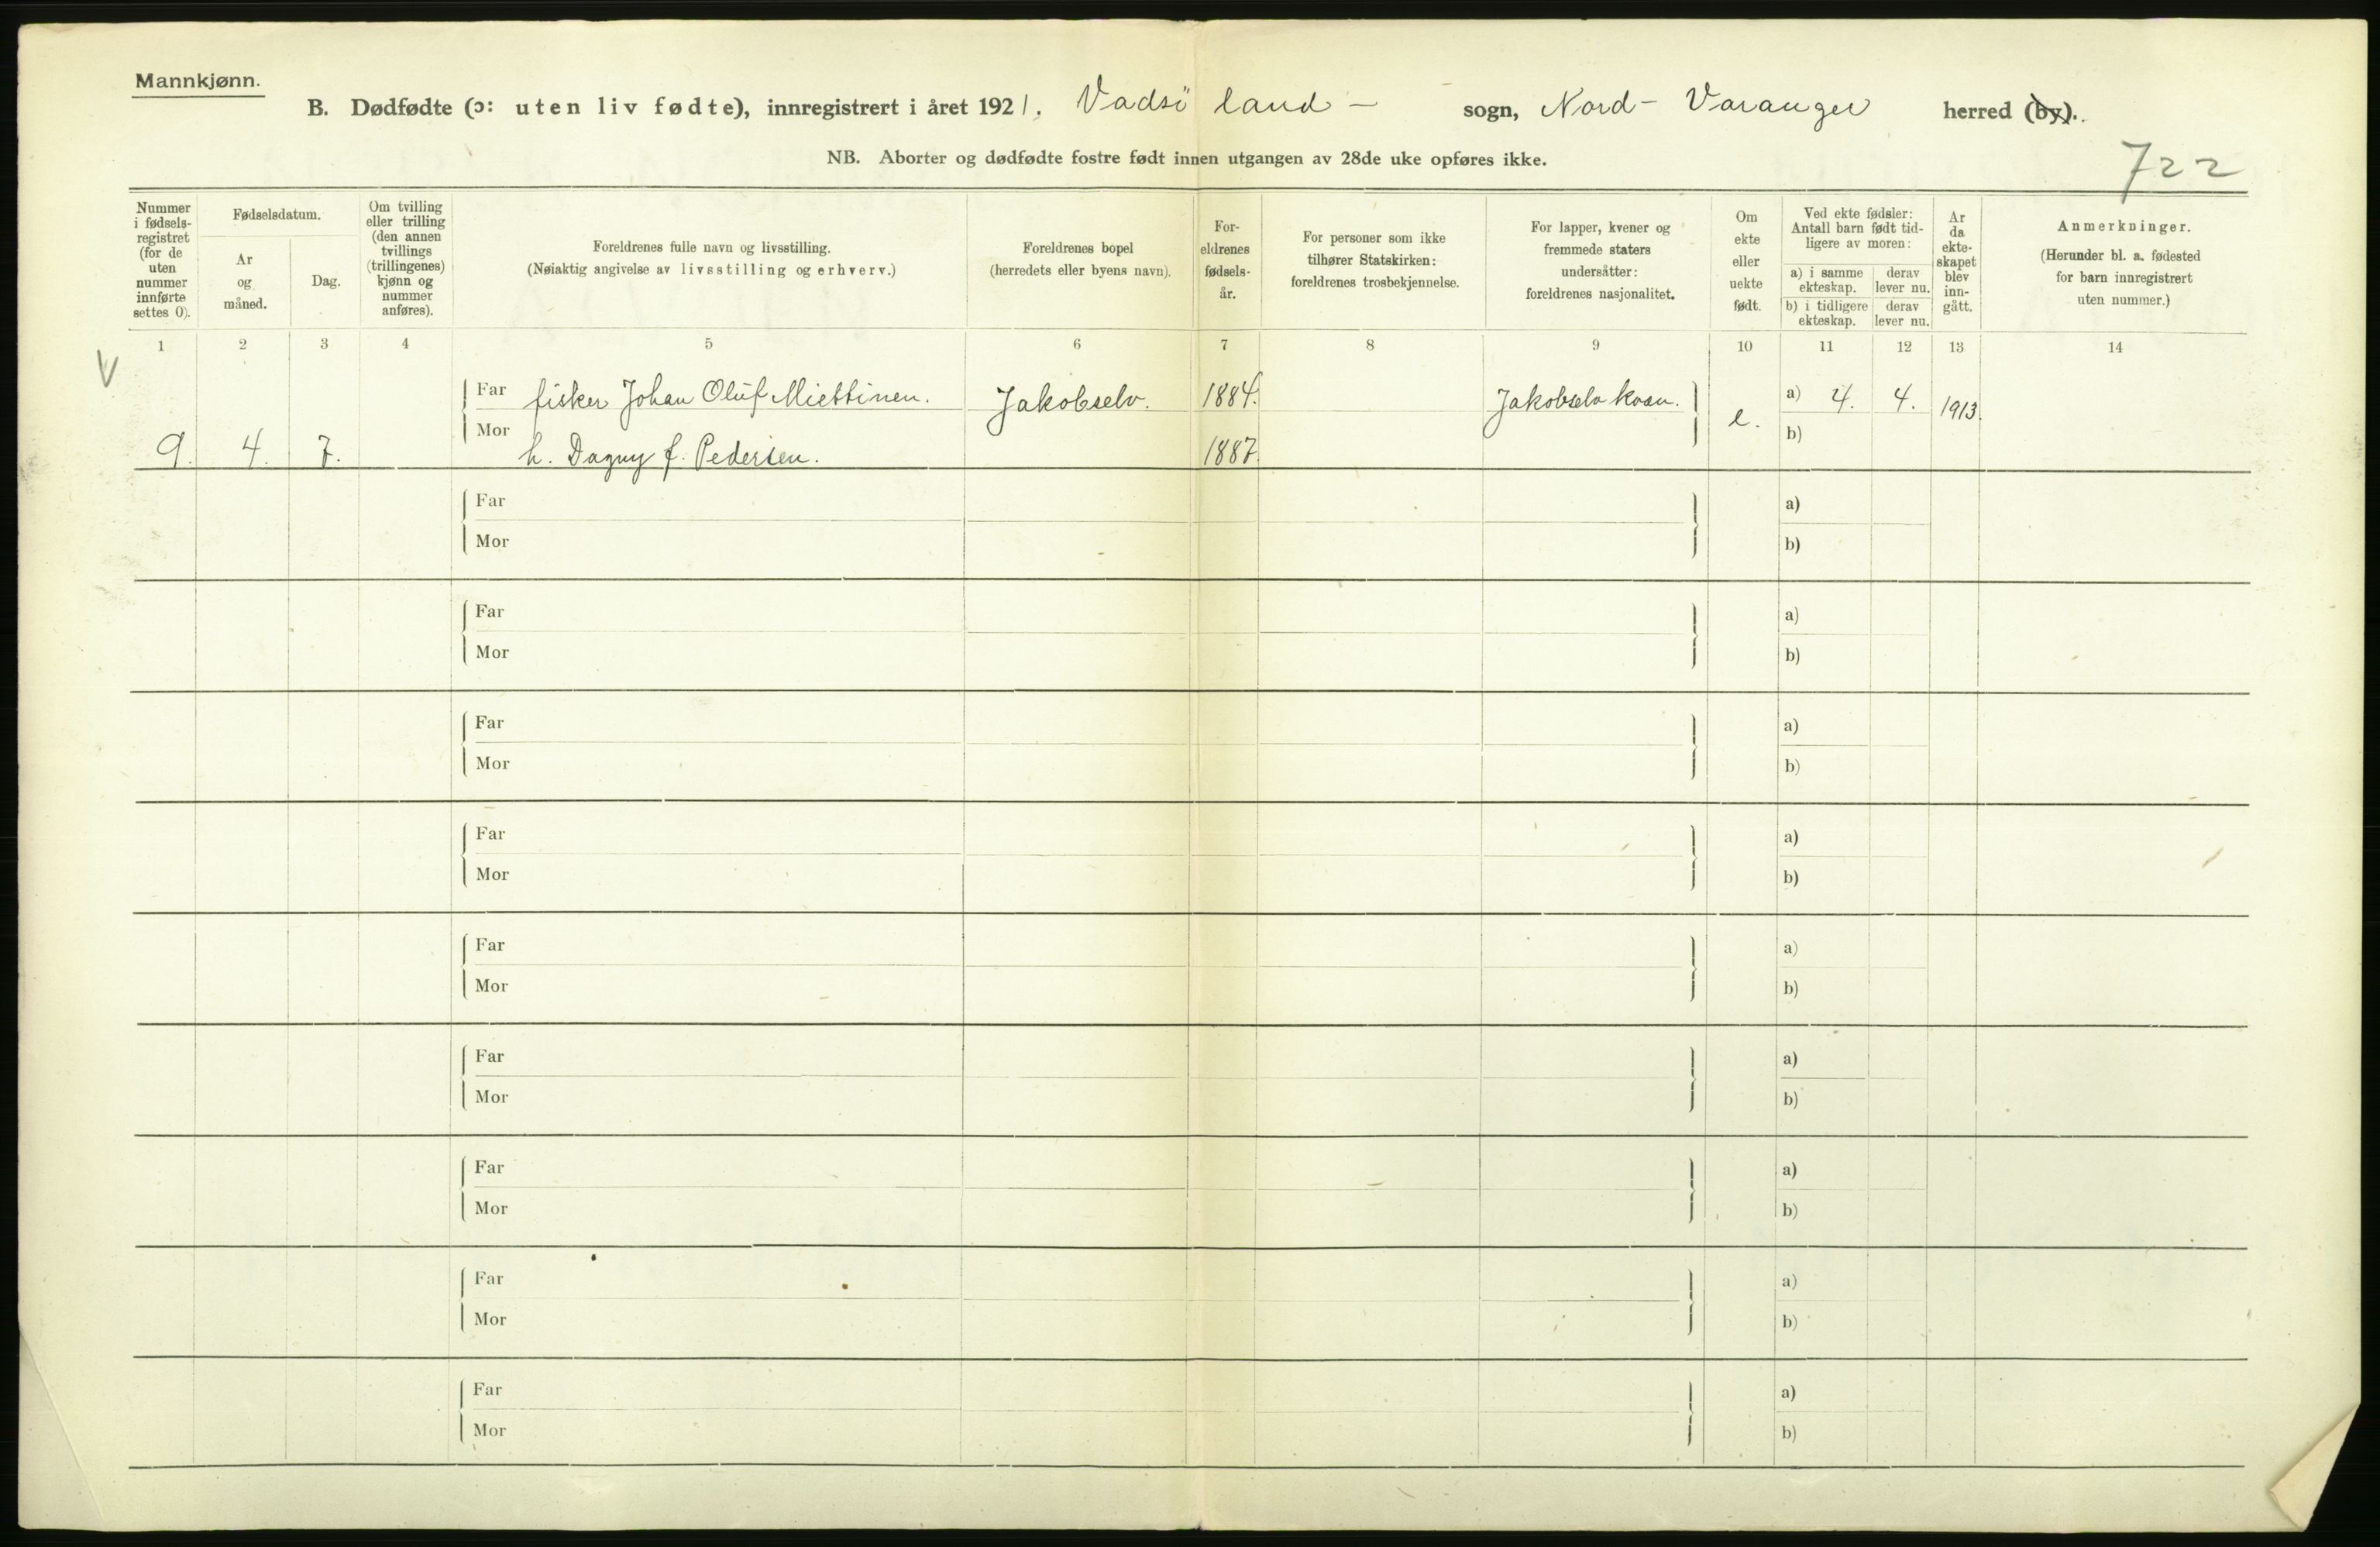 Mannkjønn.
B. Dødfødte (ɔ: uten liv fødte), innregistrert i året 1921. Vadsö land - sogn, Nord - Varanger herred (by).
NB. Aborter og dødfødte fostre født innen utgangen av 28de uke opføres ikke.
722
Nummer
i fødsels-
registret
(for de
uten
nummer
innførte
settes 0).
Fødselsdatum.
År
og
måned.
Dag.
Om tvilling
eller trilling
(den annen
tvillings
(trillingenes)
kjønn og
nummer
anføres).
Foreldrenes fulle navn og livsstilling.
(Nøiaktig angivelse av livsstilling og erhverv.)
Foreldrenes bopel
(herredets eller byens navn).
For-
eldrenes
fødsels-
år.
For personer som ikke
tilhører Statskirken:
foreldrenes trosbekjennelse.
For lapper, kvener og
fremmede staters
undersåtter:
foreldrenes nasjonalitet.
Om
ekte
eller
uekte
født.
Ved ekte fødsler:
Antall barn født tid-
ligere av moren:
a) i samme
ekteskap.
derav
lever nu.
b) i tidligere
ekteskap.
derav
lever nu.
År
da
ekte-
skapet
blev
inn-
gått.
Anmerkninger.
(Herunder bl. a. fødested
for barn innregistrert
uten nummer.)
1 2 3 4 5 6 7 8 9 10 11 12 13 14
V
Far fisker Johan Oluf Miettinen. Jakobselv. 1884. Jakobselv kvæn. e. a) 4. 4. 1913.
Mor b)
9. 4. 7. h. Dagny f. Pedersen. 1887.
Far a)
Mor b)
Far a)
Mor b)
Far a)
Mor b)
Far a)
Mor b)
Far a)
Mor b)
Far a)
Mor b)
Far a)
Mor b)
Far a)
Mor b)
Far a)
Mor b)